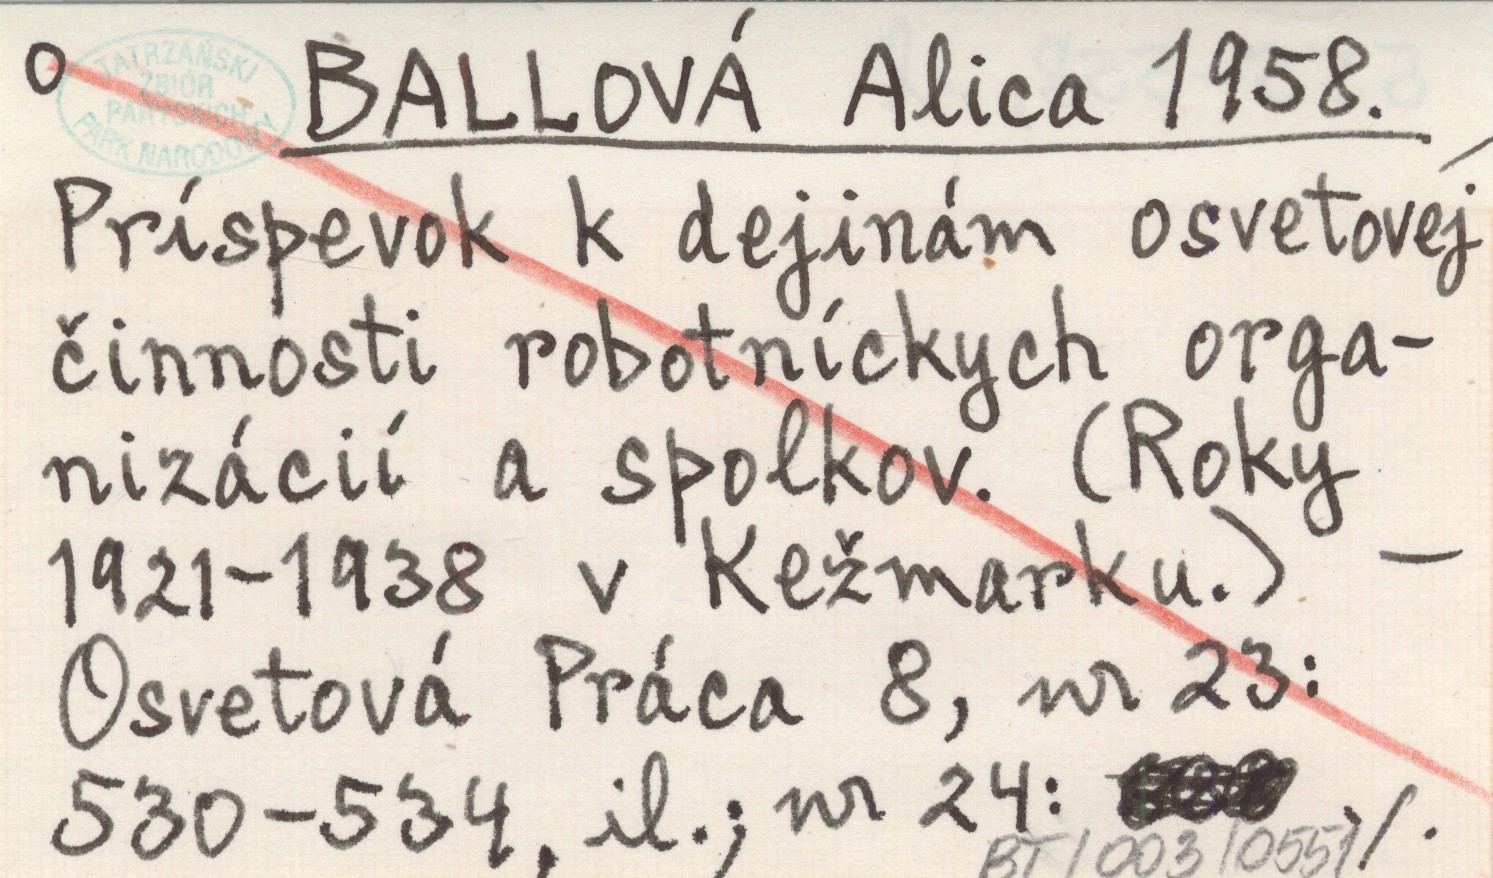 o BALLOVÁ Alica 1958.
TATRZAŃSKI
ZBIÓR
PARK NARODOWY
Príspevok k dejinám osvetovej
činnosti robotníckych orga-
nizácií a spolkov. (Roky
1921-1938 v Kežmarku.) —
Osvetová Práca 8, nr 23:
530-534, il.; nr 24: /.
BT/003/0551